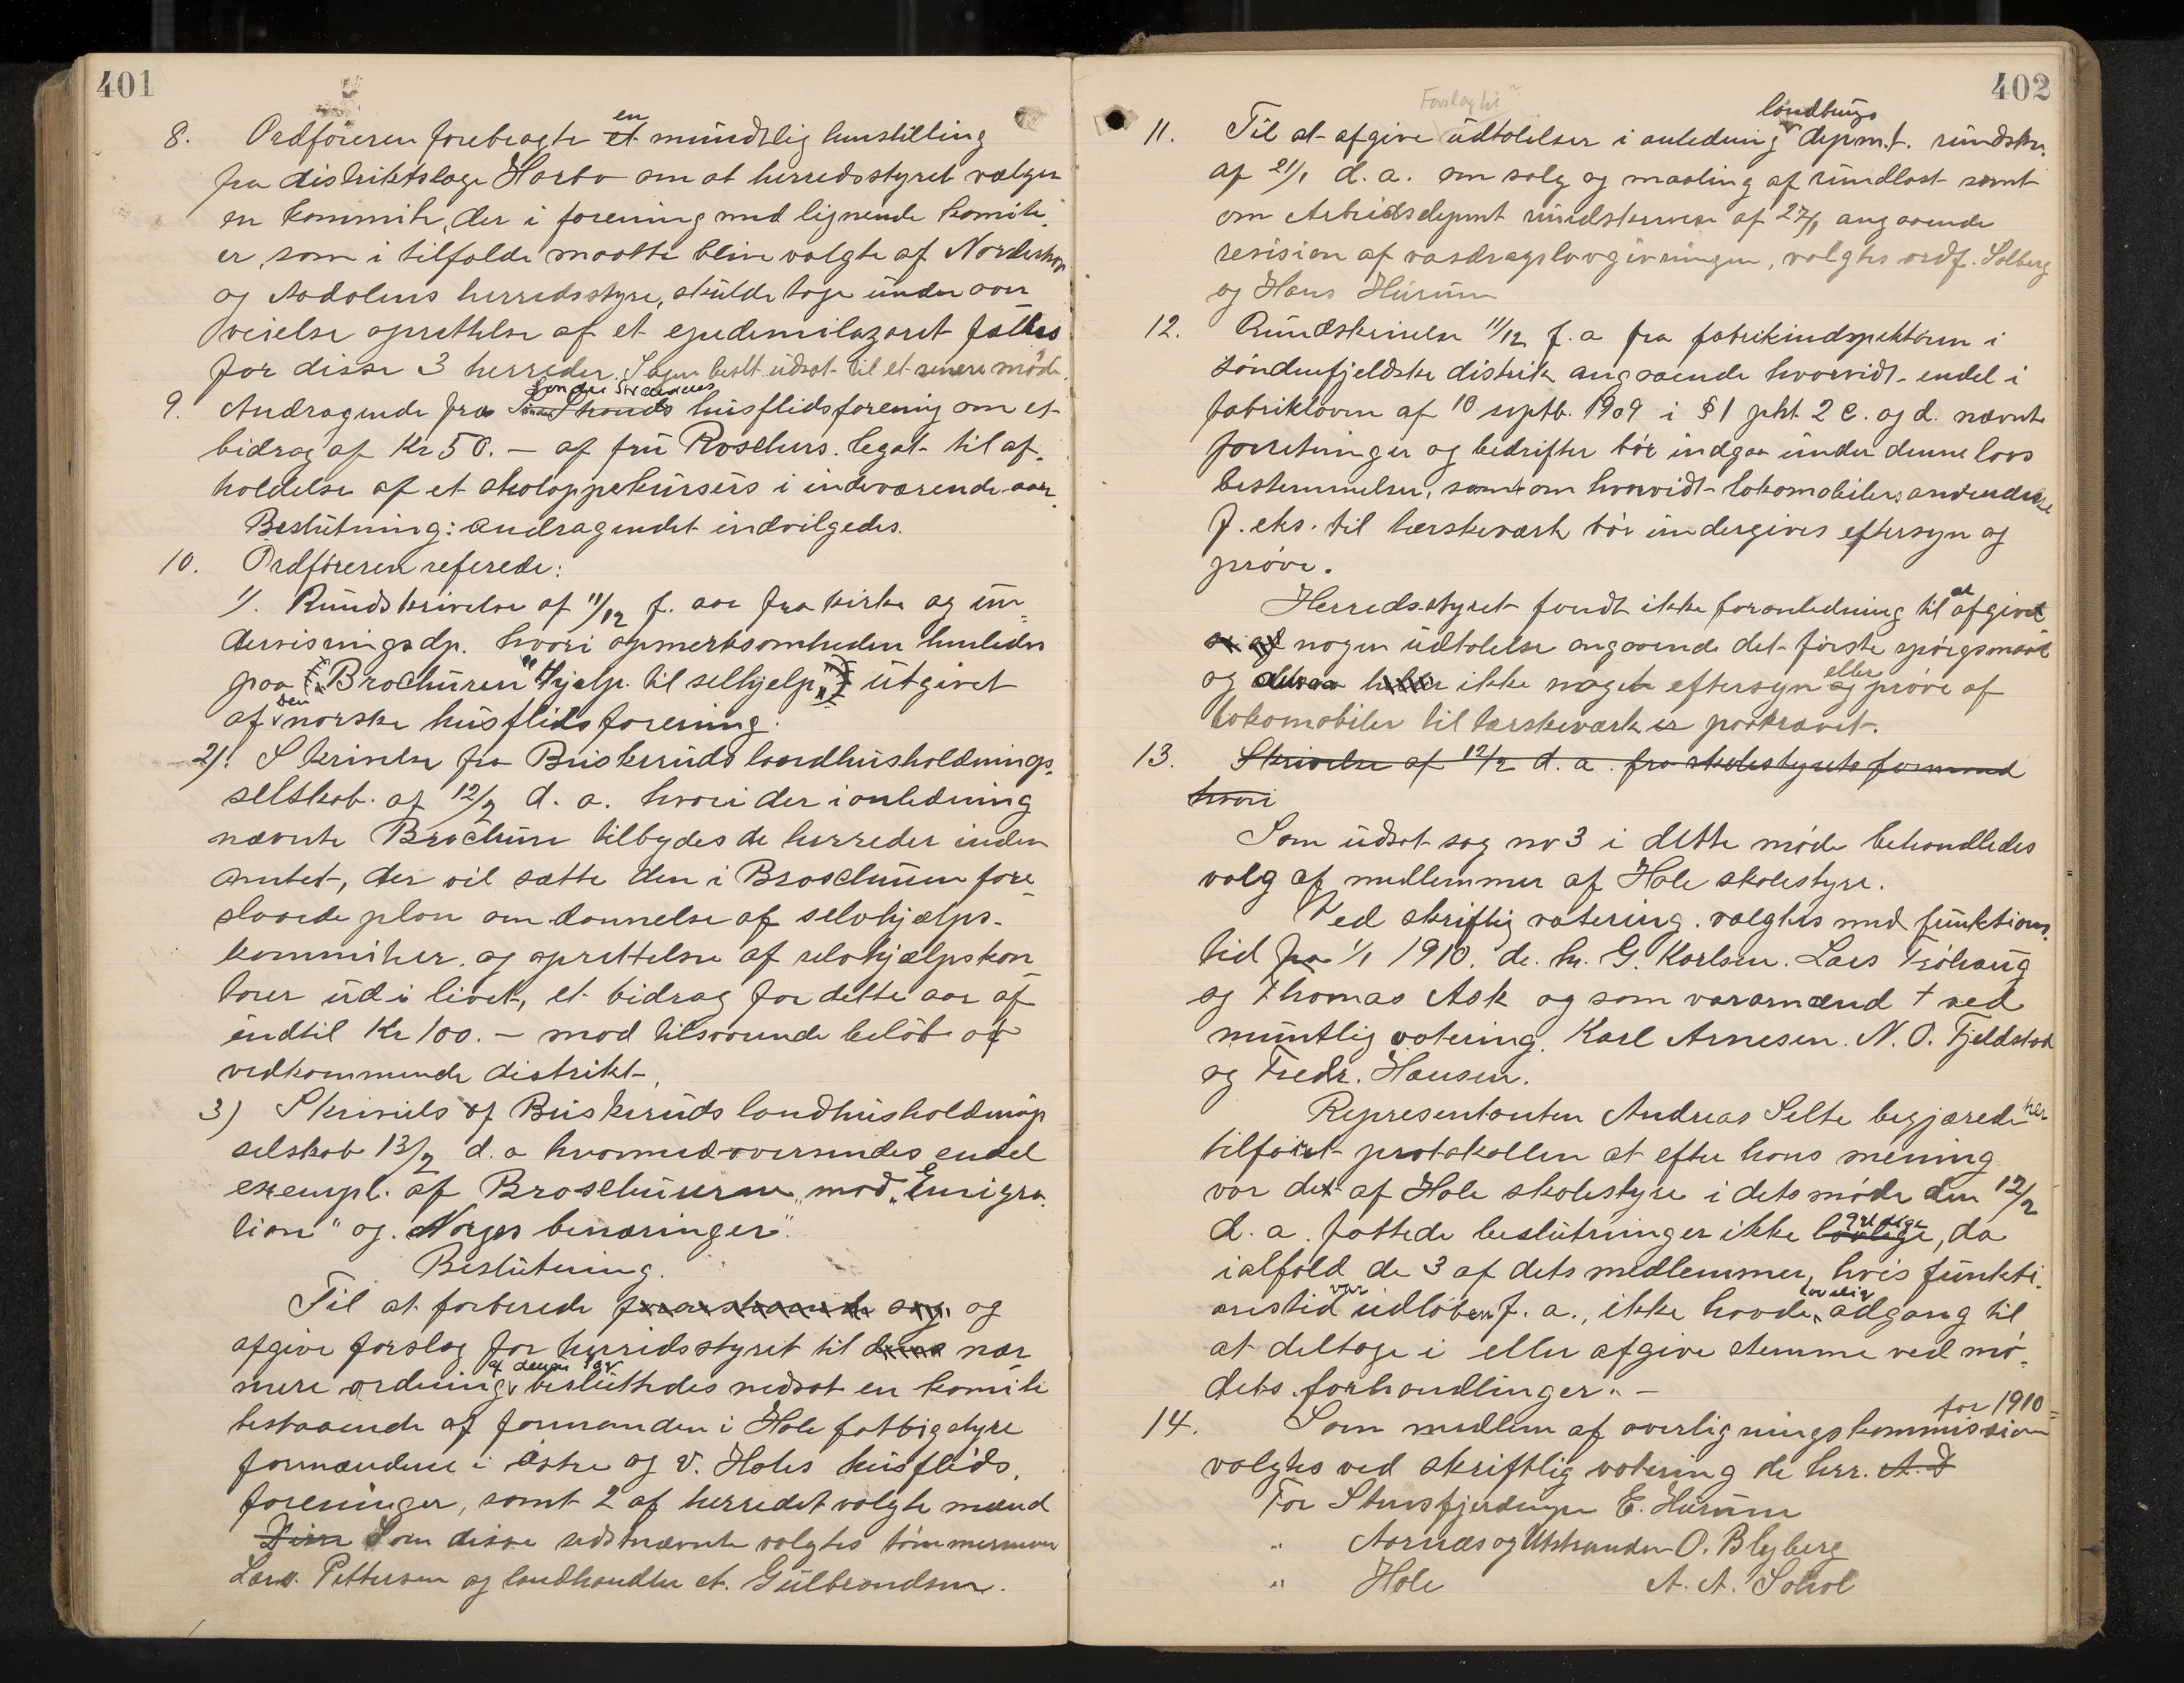 401
8. Ordføreren forebragte en mundtlig henstilling
fra distriktslæge Harbo om at herredsstyret vælger
en kommite, der i forening med lignende komite-
er, som i tilfælde maatte blive valgte af Norderhov
og Aadalens herredsstyre, skulde tage under over
veielse oprettelse af et epedemilazaret fælles
for disse 3 herreder. Sagen beslt. udsat til et senere møde.
9. Andragende fra Søndre Strands husflidsforenig om et
bidrag af Kr 50.- af fru Roschers legat til af-
holdelse af et stoloppekursus i indeværende aar
Beslutning: andragendet indvilgedes.
10. Ordføreren referede:
1/. Rundskrivelse af 11/12 f. aar fra kirke og un-
dervisningsdp. hvori opmerksomheden henledes
paa Brochuren "Hjelp til selhjelp" utgivet
af den norske husflids forening.
2/. Skrivelse fra Buskeruds landhusholdnings-
selskab af 12/2 d. a. hvori der i anledning
nævnte Brochure tilbydes de herreder inden
amtet, der vil sætte den i Broschuren fore
slaaede plan om dannelse af selvhjælps-
kommiteer og oprettelse af selvhjælpskon
torer ud i livet, et bidrag for dette aar af
indtil Kr 100.- mod tilsvarende beløb af
vedkommende distrikt.
3) Skrivels af Buskeruds landhusholdnings
selskab 13/2 d. a hvormed oversendes endel
exempl. af Broschurerne "mod Emigra-
tion" og "Norges benæringer".
Beslutning.
Til at forberede foranstaaende sag og
afgive forslag for herredsstyret til dens nær
mere ordening af denne sag besluttedes nedsat en komite
bestaaende af formanden i Hole fattigstyre
formændene i østre og v. Holes husflids-
foreninger, samt 2 af herredet valgte mænd
Som disse sidstnævnte valgtes tømmermann
Lars Pettersen og landhandler A. Gulbrandsen.
402
Forslag til
11. Til at afgive udtalelser i anledning landbrugs depm.t. rundskr.
af 21/1 d. a. om salg og maaling af rundlast samt
om Arbeidsdepmt rundskrivelse af 27/1 angaaende
revision af vasdragslovgivningen, valgtes ordf. Solberg
og Hans Hurum
12. Rundskrivelse 11/12 f. a fra fabrikindspektøren i
søndenfjeldske distrikt angaaende hvorvidt endel i
fabrikloven af 10 septb. 1909 i § 1 pkt. 2 c. og d. nævnte
forretninger og bedrifter bør indgaa under denne lovs
bestemmelser, samt om hvorvidt lokomobilers anvendelse
f. eks. til tærskeværk bør undergives eftersyn og
prøve.
Herredsstyret fandt ikke foranledning til at afgive
nogen udtalelse angaaende det første spørgsmaal
og ikke noget eftersyn eller prøve af
lokomobiler til tærskeværk er paakrævet.
13. Skrivelse af 12/2 d. a. fra skolestyrets formand
hvori
Som udsat sag nr 3 i dette møde behandledes
valg af medlemmer af Hole skolestyre.
Ved skriftlig votering valgtes med funktions-
tid fra 1/1 1910. de. hr. G. Karlsen. Lars Frøhaug
og Thomas Ask og som varamænd + ved
muntlig votering Karl Arnesen. N. O. Fjeldstad
og Fredr. Hansen.
Representanten Andreas Selte begjærede her
tilført protokollen at efter hans mening
var det af Hole skolestyre i dets møde den 12/2
d. a. fattede beslutninger ikke gyldige, da
ialfald de 3 af dets medlemmer, hvis funkti-
onstid var udløben f. a., ikke havde lovlig adgang til
at deltage i eller afgive stemme ved mø-
dets forhandlinger.-
14. Som medlem af overligningskommission for 1910
valgtes ved skriftlig votering de herr. A. D
For Stensfjerdingen E. Hurum
" Aarnæs og Utstranden O. Blyberg
" Hole A. A. Sohol